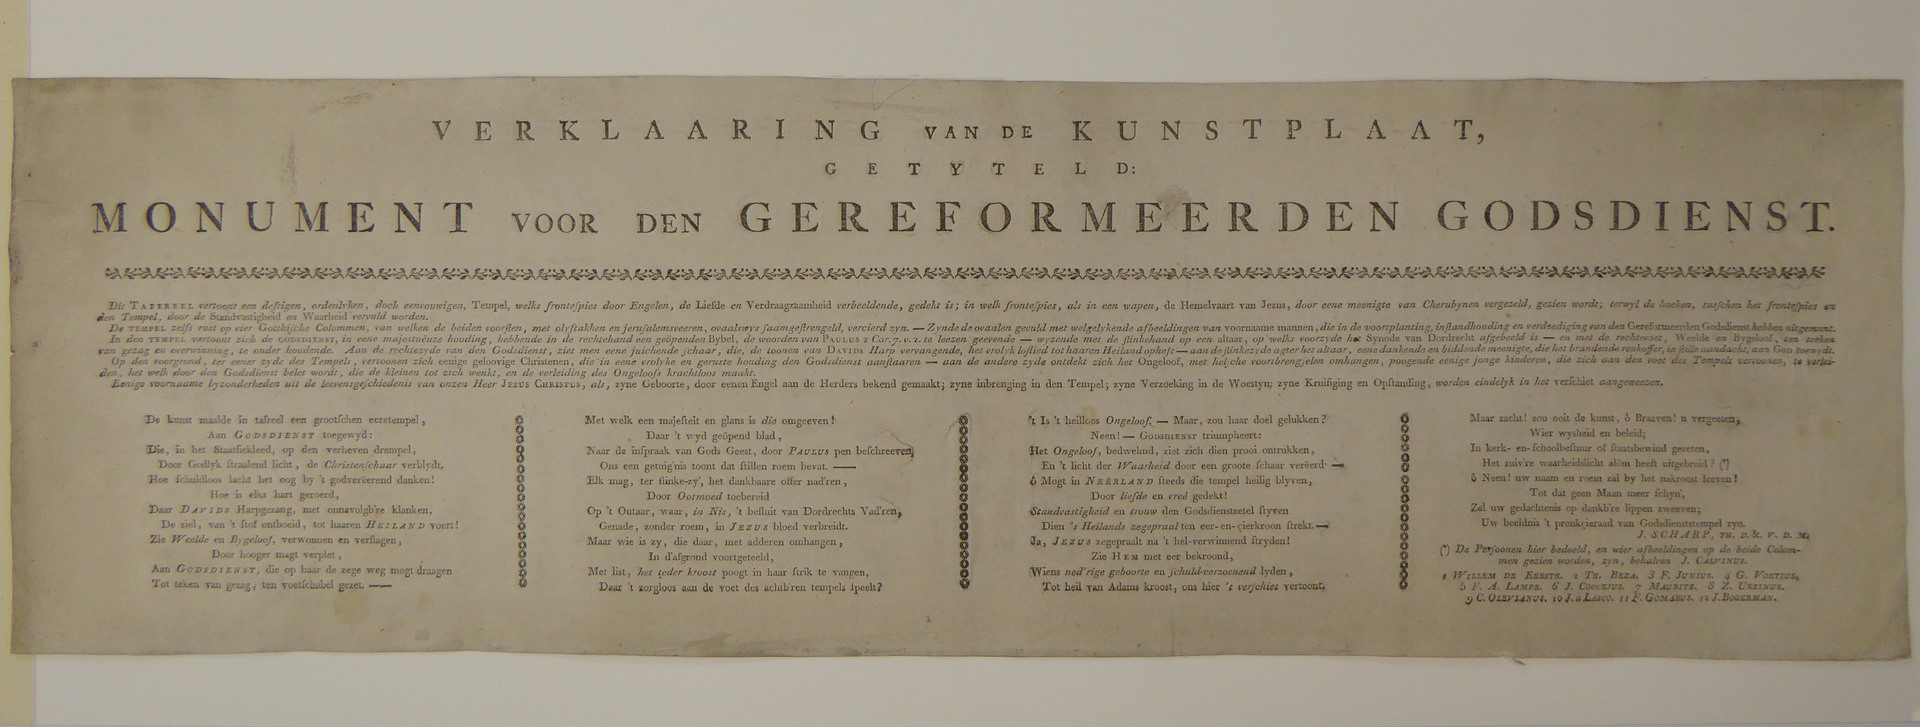 VERKLAARING VAN DE KUNSTPLAAT,
GETYTELD:
MONUMENT VOOR DEN GEREFORMEERDEN GODSDIENST.
Dit TAFEREEL vertoont een deftigen, ordenlyken, doch eenvouwigen, Tempel, welks frontefpies door Engelen, de Liefde en Verdraagzaamheid verbeeldende, gedekt is; in welk frontefpies, als in een wapen, de Hemelvaart van Jezus, door eene meenigte van Cherubynen vergezeld, gezien wordt; terwyl de hoeken, tusfchen het frontefpies en
den Tempel, door de Standvastigheid en Waarheid vervuld worden.
De TEMPEL zelfs rust op vier Gottifche Colommen, van welken de beiden voorften, met olyftakken en jerufalemsveeren, ovaalwys faamgeftrengeld, vercierd zyn. — Zynde de ovaalen gevuld met welgelykende afbeeldingen van voornaame mannen, die in de voortplanting, inftandhouding en verdeediging van den Gereformeerden Godsdienst hebben uitgemunt.
In den TEMPEL vertoont zich de GODSDIENST, in eene majestueuze houding, hebbende in de rechtehand een geöpenden Bybel, de woorden van PAULUS 2 Cor. 7. v. 2. te leezen geevende — wyzende met de flinkehand op een altaar, op welks voorzyde het Synode van Dordrecht afgebeeld is — en met de rechtevoet, Weelde en Bygeloof, ten teeken
van gezag en overwinning, te onder houdende. Aan de rechtezyde van den Godsdienst, ziet men eene juichende fchaar, die, de toonen van DAVIDS Harp vervangende, het vrolyk loflied tot haaren Heiland opheft — aan de flinkezyde agter het altaar, eene dankende en biddende meenigte, die het brandende reukoffer, in ftille aandacht, aan GOD toewydt.
Op den voorgrond, ter eener zyde des Tempels, vertoonen zich eenige geloovige Christenen, die in eene vrolyke en geruste houding den Godsdienst aanftaaren — aan de andere zyde ontdekt zich het Ongeloof, met helfche voortbrengfelen omhangen, poogende eenige jonge kinderen, die zich aan den voet des Tempels vertoonen, te verlei-
den, het welk door den Godsdienst belet wordt, die de kleinen tot zich wenkt, en de verleiding des Ongeloofs krachtloos maakt.
Eenige voornaame byzonderheden uit de leevensgefchiedenis van onzen Heer JEZUS CHRISTUS, als, zyne Geboorte, door eenen Engel aan de Herders bekend gemaakt; zyne inbrenging in den Tempel; zyne Verzoeking in de Woestyn; zyne Kruifiging en Opftanding, worden eindelyk in het verfchiet aangeweezen.
De kunst maalde in tafreel een grootfchen eeretempel,
Aan GODSDIENST toegewyd:
Die, in het Staatfiekleed, op den verheven drempel,
Door Godlyk ftraalend licht, de Christenfchaar verblydt.
Hoe fchuldloos lacht het oog by 't godverëerend danken!
Hoe is elks hart geroerd,
Daar DAVIDS Harpgezang, met onnavolgb're klanken,
De ziel, van 't ftof ontboeid, tot haaren HEILAND voert!
Zie Weelde en Bygeloof, verwonnen en verflagen,
Door hooger magt verplet,
Aan GODSDIENST, die op haar de zege weg mogt draagen
Tot teken van gezag, ten voetfchabel gezet. —
Met welk een majefteit en glans is die omgeeven!
Daar 't wyd geöpend blad,
Naar de infpraak van Gods Geest, door PAULUS pen befchreeven,
Ons een getuig'nis toont dat ftillen roem bevat. —
Elk mag, ter flinke-zy', het dankbaare offer nad'ren,
Door Ootmoed toebereid
Op 't Outaar, waar, in Nis, 't befluit van Dordrechts Vad'ren,
Genade, zonder roem, in JEZUS bloed verbreidt.
Maar wie is zy, die daar, met adderen omhangen,
In d'afgrond voortgeteeld,
Met list, het teder kroost poogt in haar ftrik te vangen,
Daar 't zorgloos aan de voet des achtb'ren tempels fpeelt?
't Is 't heilloos Ongeloof. — Maar, zou haar doel gelukken?
Neen! — GODSDIENST triumpheert:
Het Ongeloof, bedwelmd, ziet zich dien prooi ontrukken,
En 't licht der Waarheid door een groote fchaar vereerd. —
ô Mogt in NEÊRLAND fteeds die tempel heilig blyven,
Door liefde en vreê gedekt!
Standvastigheid en trouw den Godsdienstzetel ftyven
Dien 's Heilands zegepraal ten eer- en-cierkroon ftrekt. —
Ja, JEZUS zegepraalt na 't hel-verwinnend ftryden!
Zie HEM met eer bekroond,
Wiens ned'rige geboorte en fchuld-verzoenend lyden,
Tot heil van Adams kroost, ons hier 't verfchiet vertoont.
Maar zacht! zou ooit de kunst, ô Braaven! u vergeeten,
Wier wysheid en beleid;
In kerk- en-fchoolbeftuur of ftaatsbewind gezeten,
Het zuiv're waarheidslicht alöm heeft uitgebreid? (*)
ô Neen! uw naam en roem zal by het nakroost leeven!
Tot dat geen Maan meer fchyn',
Zal uw gedachtenis op dankb're lippen zweeven;
Uw beeldnis 't pronkçieraad van Godsdienstzetempel zyn.
J. SCHARP, TH. D. & V. D. M.
(*) De Perfoonen hier bedoeld, en wier afbeeldingen op de beide Colom-
men gezien worden, zyn, behalven J. CALVINUS.
1 WILLEM DE EERSTE. 2 TH. BEZA. 3 F. JUNIUS. 4 G. VOETIUS.
5 F. A. LAMPE. 6 J. COCCEJUS. 7 MAURITZ. 8 Z. URZINUS.
9 C. OLEVIANUS. 10 J. a LASCO. 11 F. GOMARUS. 12 J. BOGERMAN.